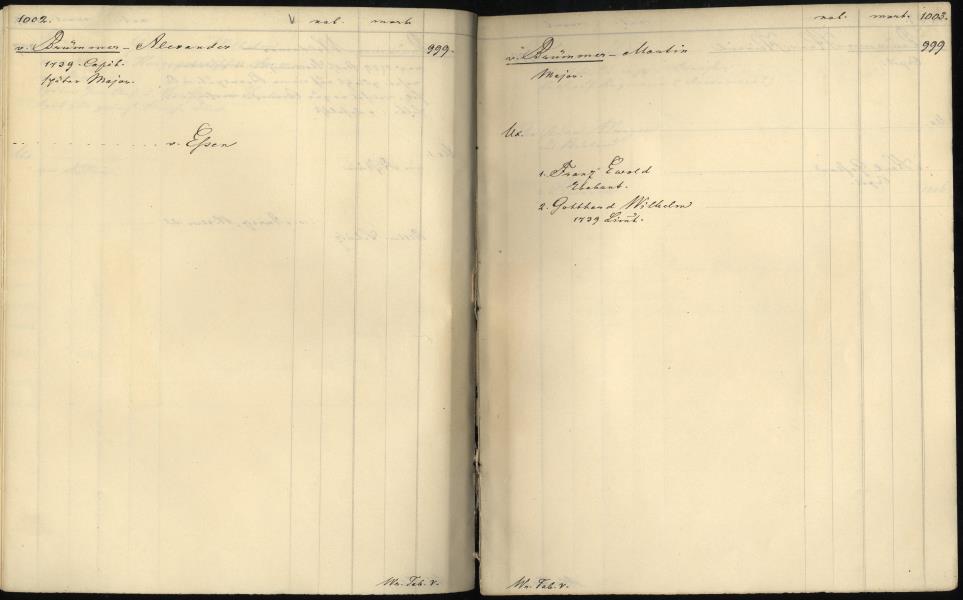 1002. nat. mort.
v. Brümmer – Alexander 999.
1739. Capit.
später Major.
v. Essen
Wr. Tab. V.
nat. mort. 1003.
v. Brümmer – Martin 999
Major.
Ux.
1. Franz Ewald
2. Gotthard Wilhelm
1739 Lieut.
Wr. Tab. V.